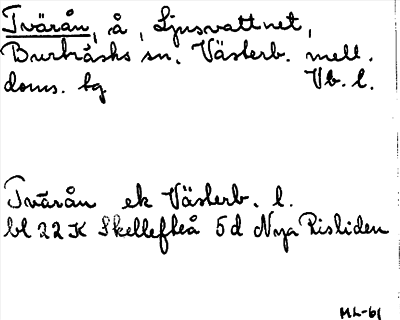 Tvärån, å, Ljusvattnet,
Burträsks sn. Västerb. mell.
doms. bg Vb. l.
Tvärån ek Västerb. l.
bl 22 K Skellefteå 5d Nya Risliden
ML-61